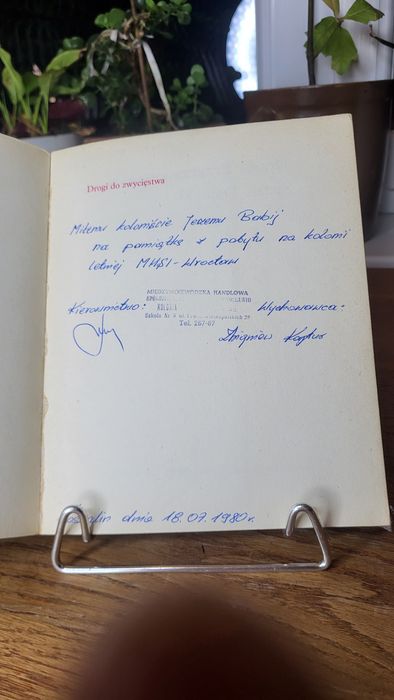 Drogi do zwycięstwa
Miłemu koloniście Jerzemu Babij
na pamiątkę z pobytu na kolonii
letniej MHSI - Wrocław
Kierownictwo:
MIĘDZYWOJEWÓDZKA HANDLOWA
KOLONIA
Szkoła Nr
Tel. 267-67
Wychowawca:
Zbigniew
dnia 18.07.1980 r.